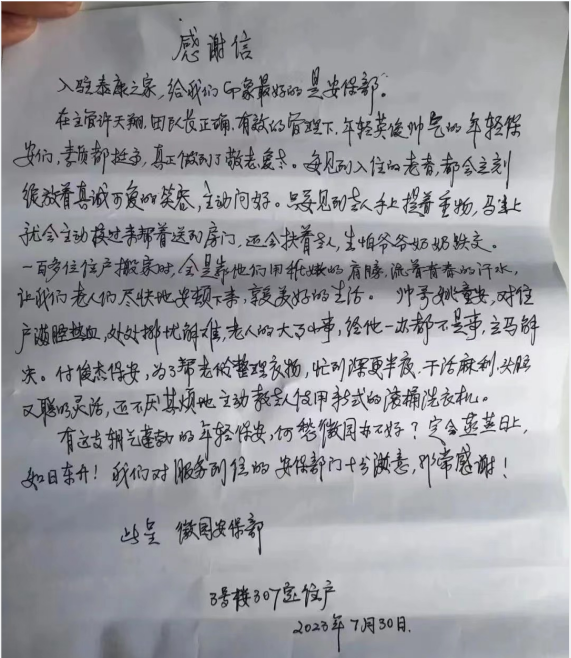 感谢信
入驻泰康之家，给我们印象最好的是安保部。
在主管许天翔，团队长正确，有效的管理下，年轻英俊帅气的年轻保
安们，素质都挺高，真正做到了敬老爱老。每见到入住的老者，都会立刻
绽放着真诚可爱的笑容，主动问好。只要见到老人手上提着重物，马上
就会主动接过来帮着送到房门，还会扶着老人，生怕爷爷奶奶跌交。
一百多位住户搬家时，全是靠他们用稚嫩的肩膀，流着青春的汗水，
让我们老人们尽快地安顿下来，享受美好的生活。 帅哥姚童安，对住
户满腔热血，处处排忧解难，老人的大事小事，经他一办都不是事，立马解
决。付俊杰保安，为了帮老伯整理衣物，忙到深更半夜，干活麻利，头脑
又聪明灵活，还不厌其烦地主动教老人使用新式的滚桶洗衣机。
有这支朝气蓬勃的年轻保安，何愁徽园办不好？定会蒸蒸日上，
如日东升！我们对服务到位的安保部门十分满意，非常感谢！
此呈 徽园安保部
3号楼307室住户
2023年7月30日.